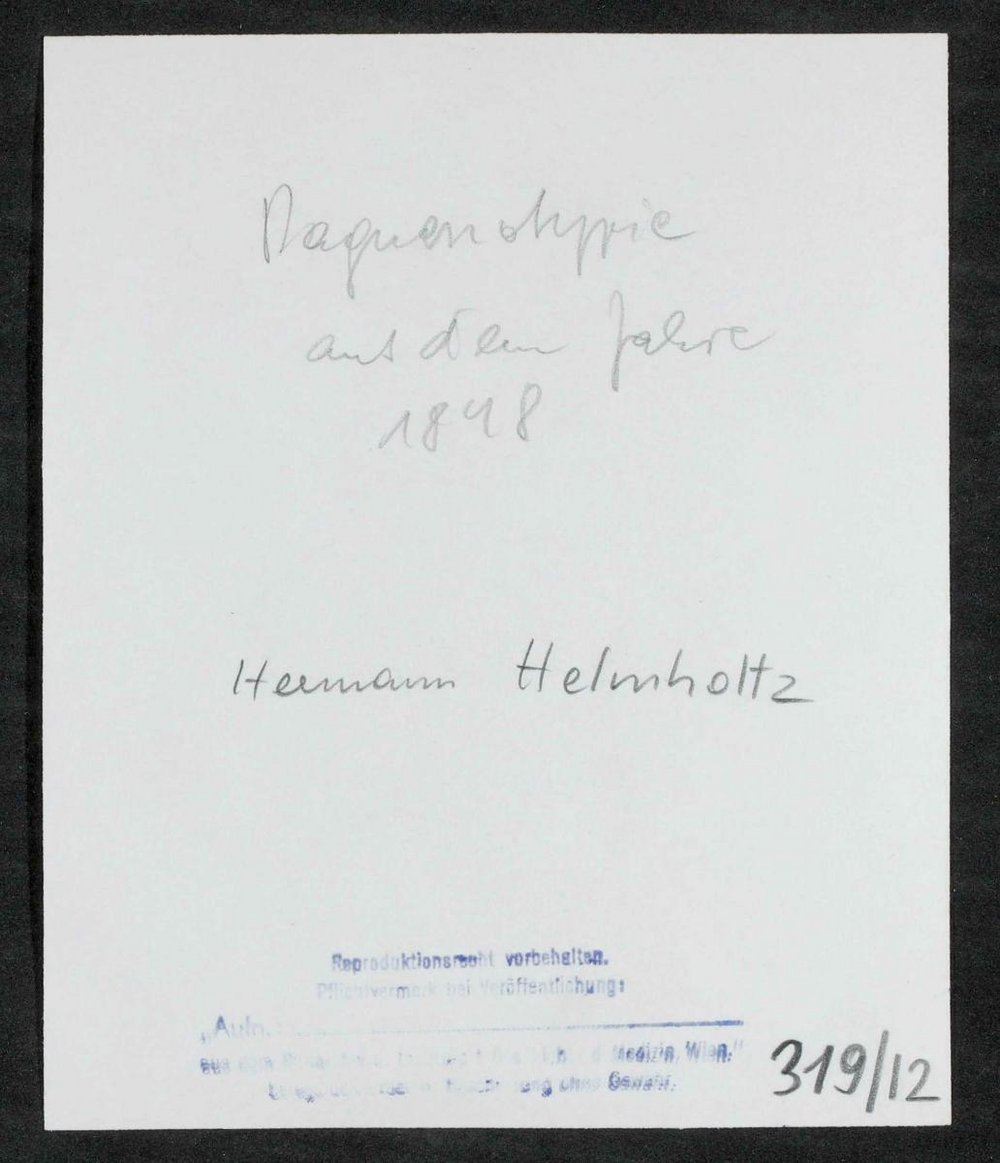 Daguerrotypie
aus dem Jahre
1848
Hermann Helmholtz
Reproduktionsrecht vorbehalten.
Pflichtvermerk bei Veröffentlichung:
„Aufn.
aus dem d. Medizin, Wien."
ohne Gewähr.
319/12